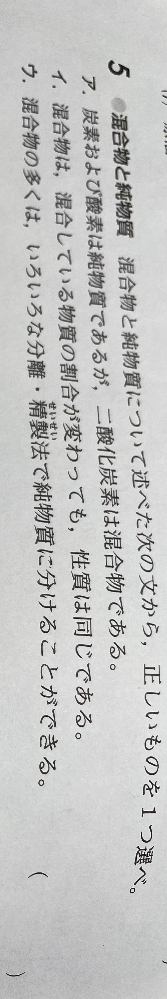 5 ●混合物と純物質 混合物と純物質について述べた次の文から，正しいものを1つ選べ。
ア．炭素および酸素は純物質であるが，二酸化炭素は混合物である。
イ．混合物は，混合している物質の割合が変わっても，性質は同じである。
ウ．混合物の多くは，いろいろな分離・精製法で純物質に分けることができる。
せいせい
(
)